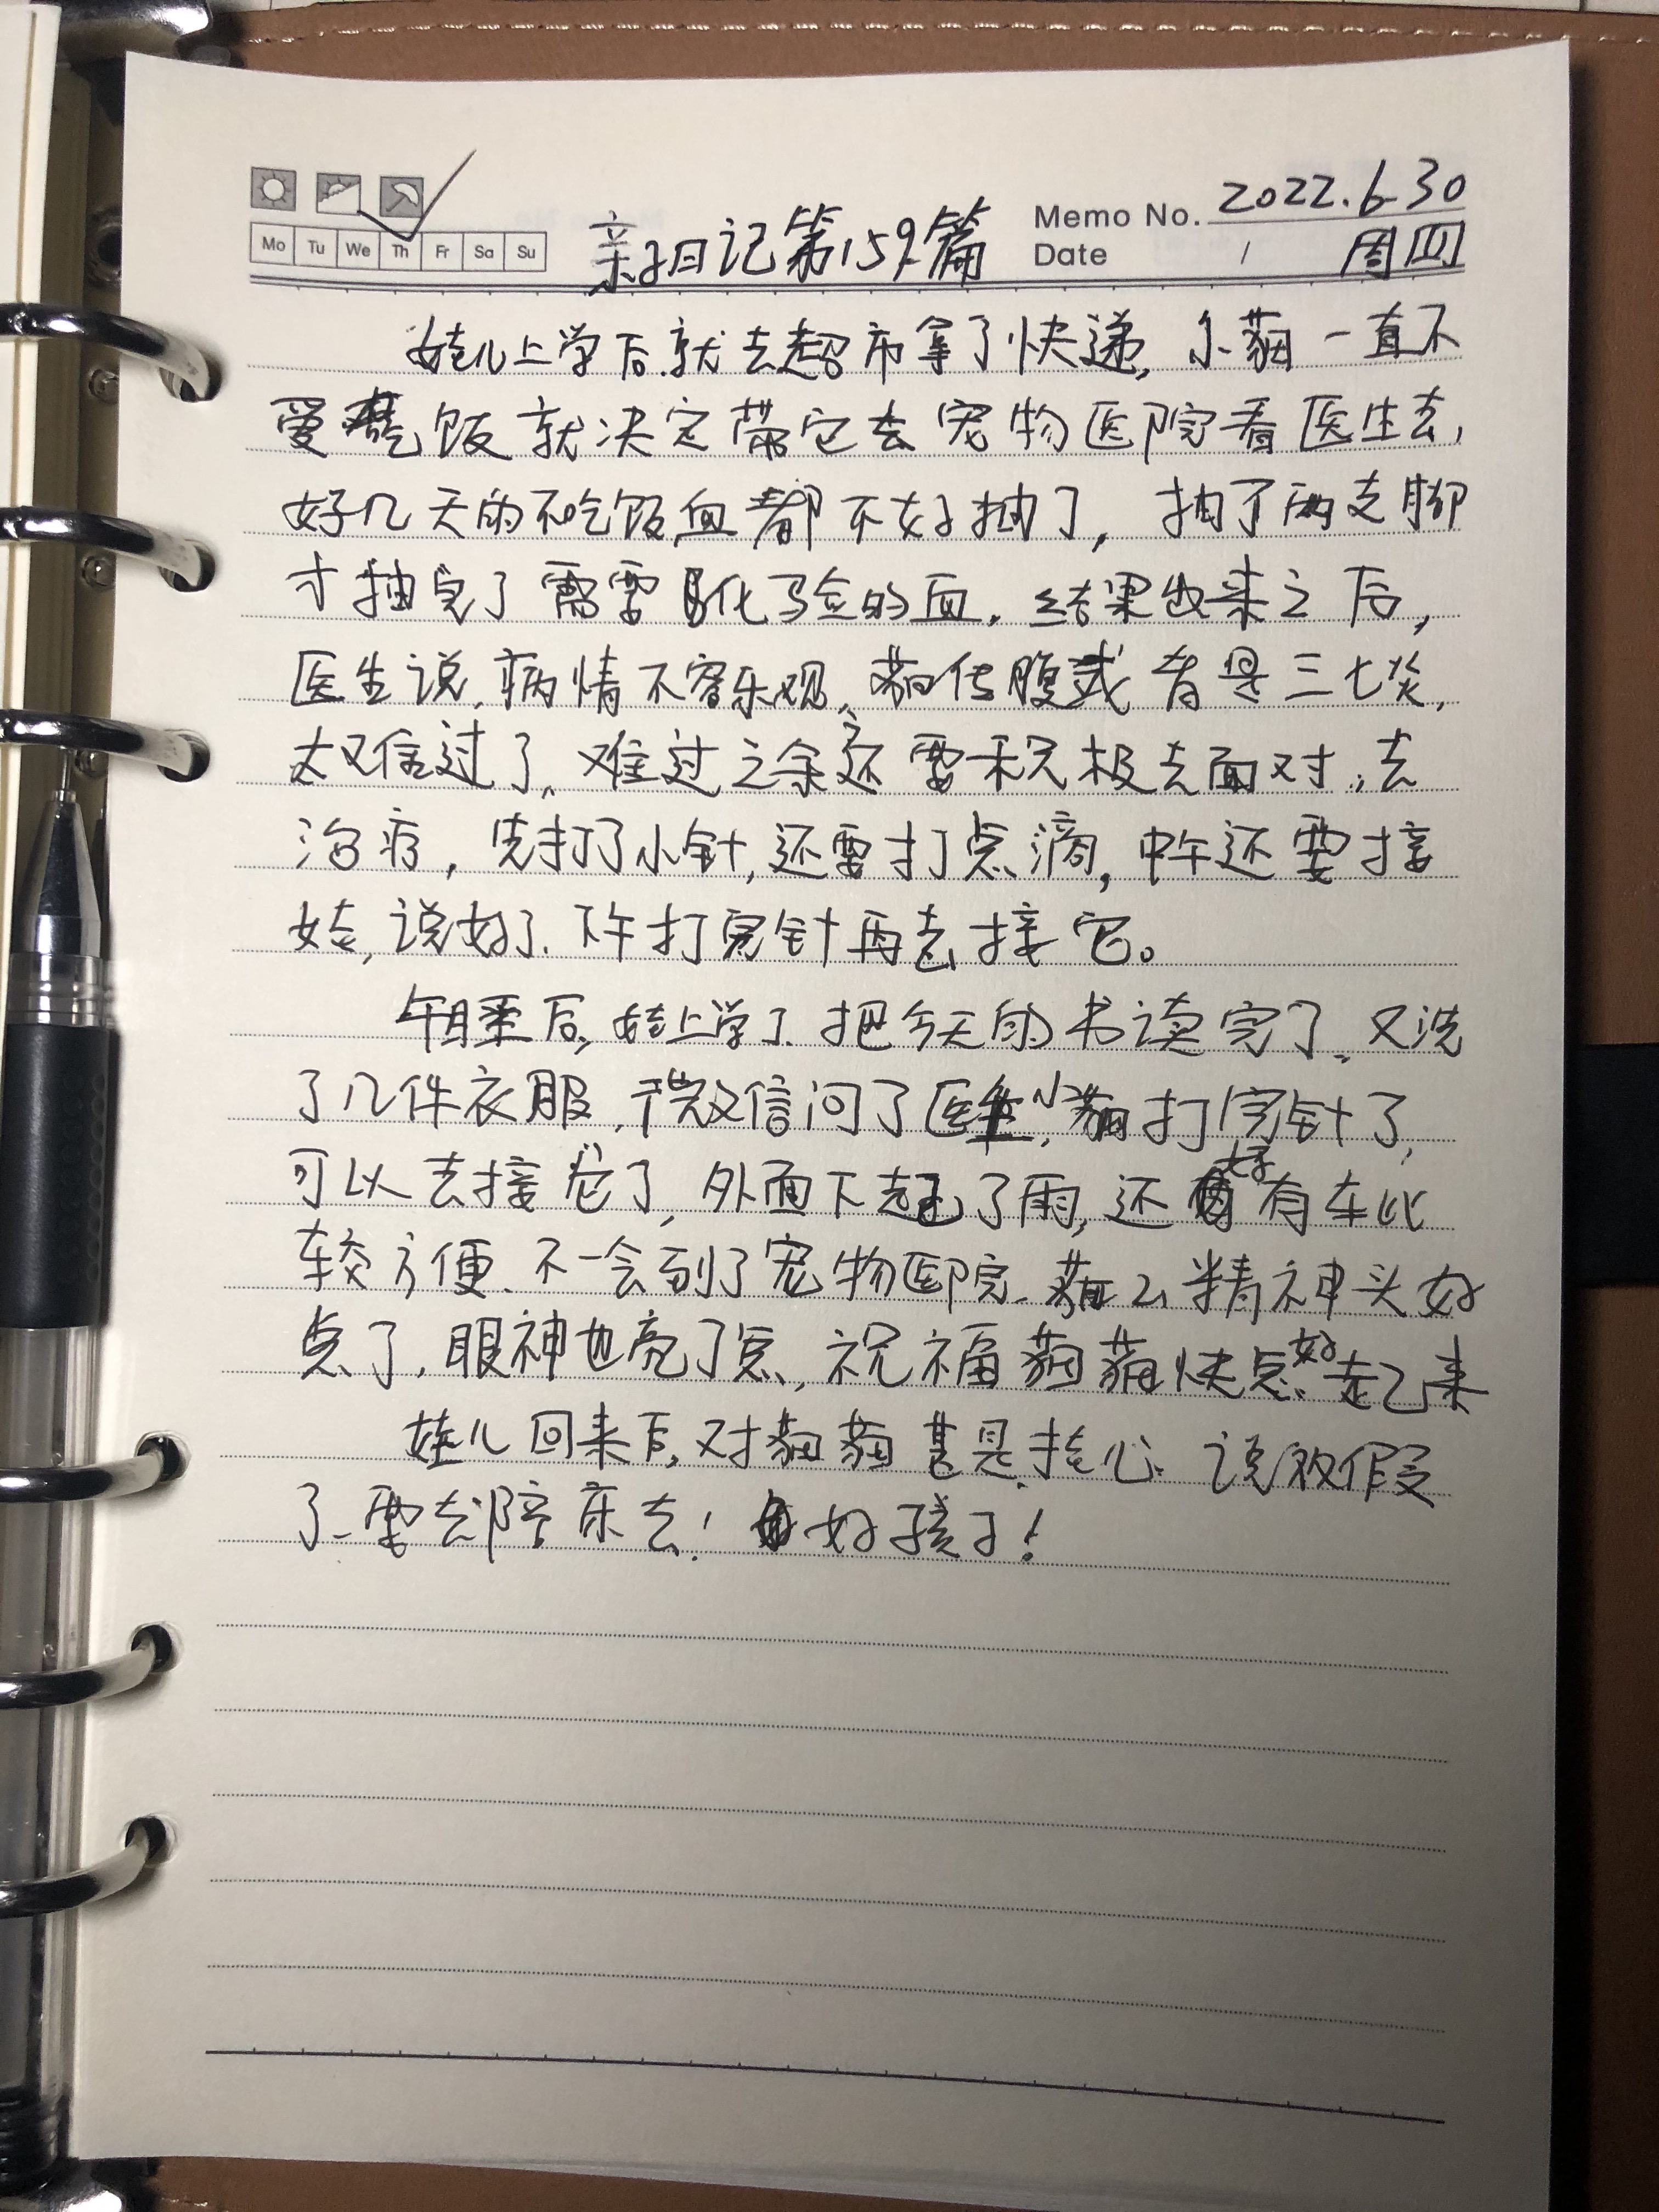 Mo Tu We Th Fr Sa Su
亲子日记第159篇
Memo No. 2022.6.30
Date / 周四
娃儿上学后就去超市拿了快递,小猫一直不
爱吃饭就决定带它去宠物医院看医生去,
好几天的不吃饭血都不好抽了,抽了两支脚
才抽完了需要化验的血。结果出来之后,
医生说,病情不容乐观,猫传腹或者是三七炎,
太难过了,难过之余还要积极去面对,去
治疗,先打了小针,还要打点滴,中午还要接
娃,说好了.下午打完针再去接它。
午睡后,娃上学了.把今天的书读完了,又洗
了几件衣服,微信问了医生,小猫打完针了,
可以去接它了,外面下起了雨,还好有车比
较方便.不一会到了宠物医院.猫么精神头好
点了,眼神也亮了点,祝福猫猫快点好起来
娃儿回来后,对猫猫甚是挂心.说放假
了要去陪床去!好孩子!